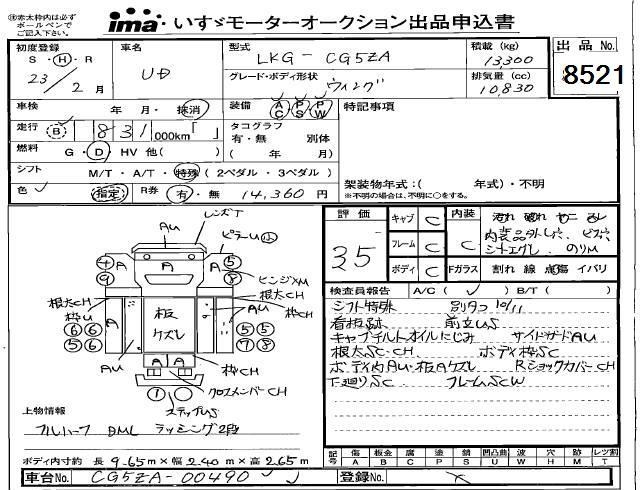 ※赤太枠内は必ず
ボールペンで
ご記入下さい。
ima いすゞモーターオークション出品申込書
出品No.
8521
初度登録 S・H・R 23/2月
車名 UD
型式 LKG-CG5ZA
グレード・ボディ形状 ウィング
積載(kg) 13,300
排気量(cc) 10,830
車検 年・月・抹消
装備 AC PS PW
特記事項
走行 B 831,000km「 」
タコグラフ 有・無 別体
( 年 月)
燃料 G・D HV 他( )
シフト M/T・A/T・特殊(2ペダル・3ペダル)
架装物年式:( 年式)・不明
※不明の場合は、不明に○をする。
色 指定 R券 有・無 14,360円
評価 35
キャブ C
フレーム C
ボディ C
内装 C
Fガラス
汚れ 破れ
内装品外し穴 ビス穴
シートエグレ のりM
割れ 線 点傷 イバリ
検査員報告 A/C( ) B/T( )
シフト特殊 別タコ10/11
看板跡 前立US
キャブチルトオイルにじみ サイドガードAU
根太SC・CH ボディ枠SC
ボディ内AU・板Aケズレ RショックカバーCH
下廻りSC フレームSCW
AU
レンズT
ピラーU小
ヒンジXM
根太CH
枠CH
根太CH
枠U
4 A A 5
9 8
6 6 A 板ケズレ AU 5 5
5 6 7 8
A A 枠CH
クロスメンバーCH
1 ステップUS
上物情報
フルハーフ DML ラッシング2段
ボディ内寸約 長9.65m×幅2.40m×高2.65m
記号 傷A 板金B 腐C 塗P 錆S 凹凸曲U 波W 穴H 跡M レツ割T
車台No. CG5ZA-00490
登録No.